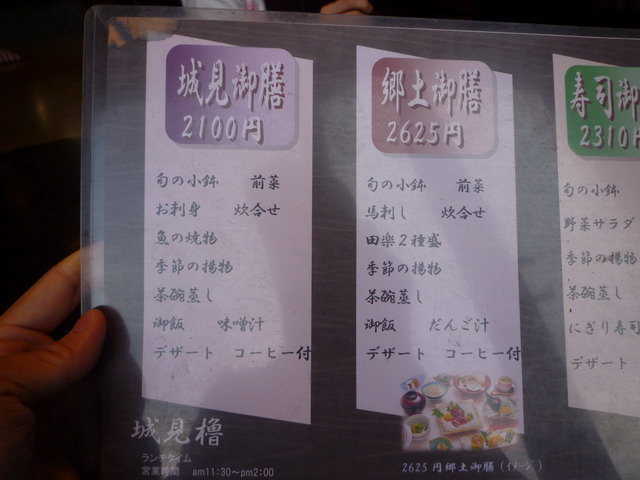 城見御膳
2100円
旬の小鉢　前菜
お刺身　炊合せ
魚の焼物
季節の揚物
茶碗蒸し
御飯　味噌汁
デザート　コーヒー付
郷土御膳
2625円
旬の小鉢　前菜
馬刺し　炊合せ
田楽2種盛
季節の揚物
茶碗蒸し
御飯　だんご汁
デザート　コーヒー付
2625円郷土御膳(イメージ)
寿司御
2310円
旬の小鉢
野菜サラダ
季節の揚物
茶碗蒸し
にぎり寿司
デザート
城見櫓
ランチタイム
営業時間　am11:30～pm2:00